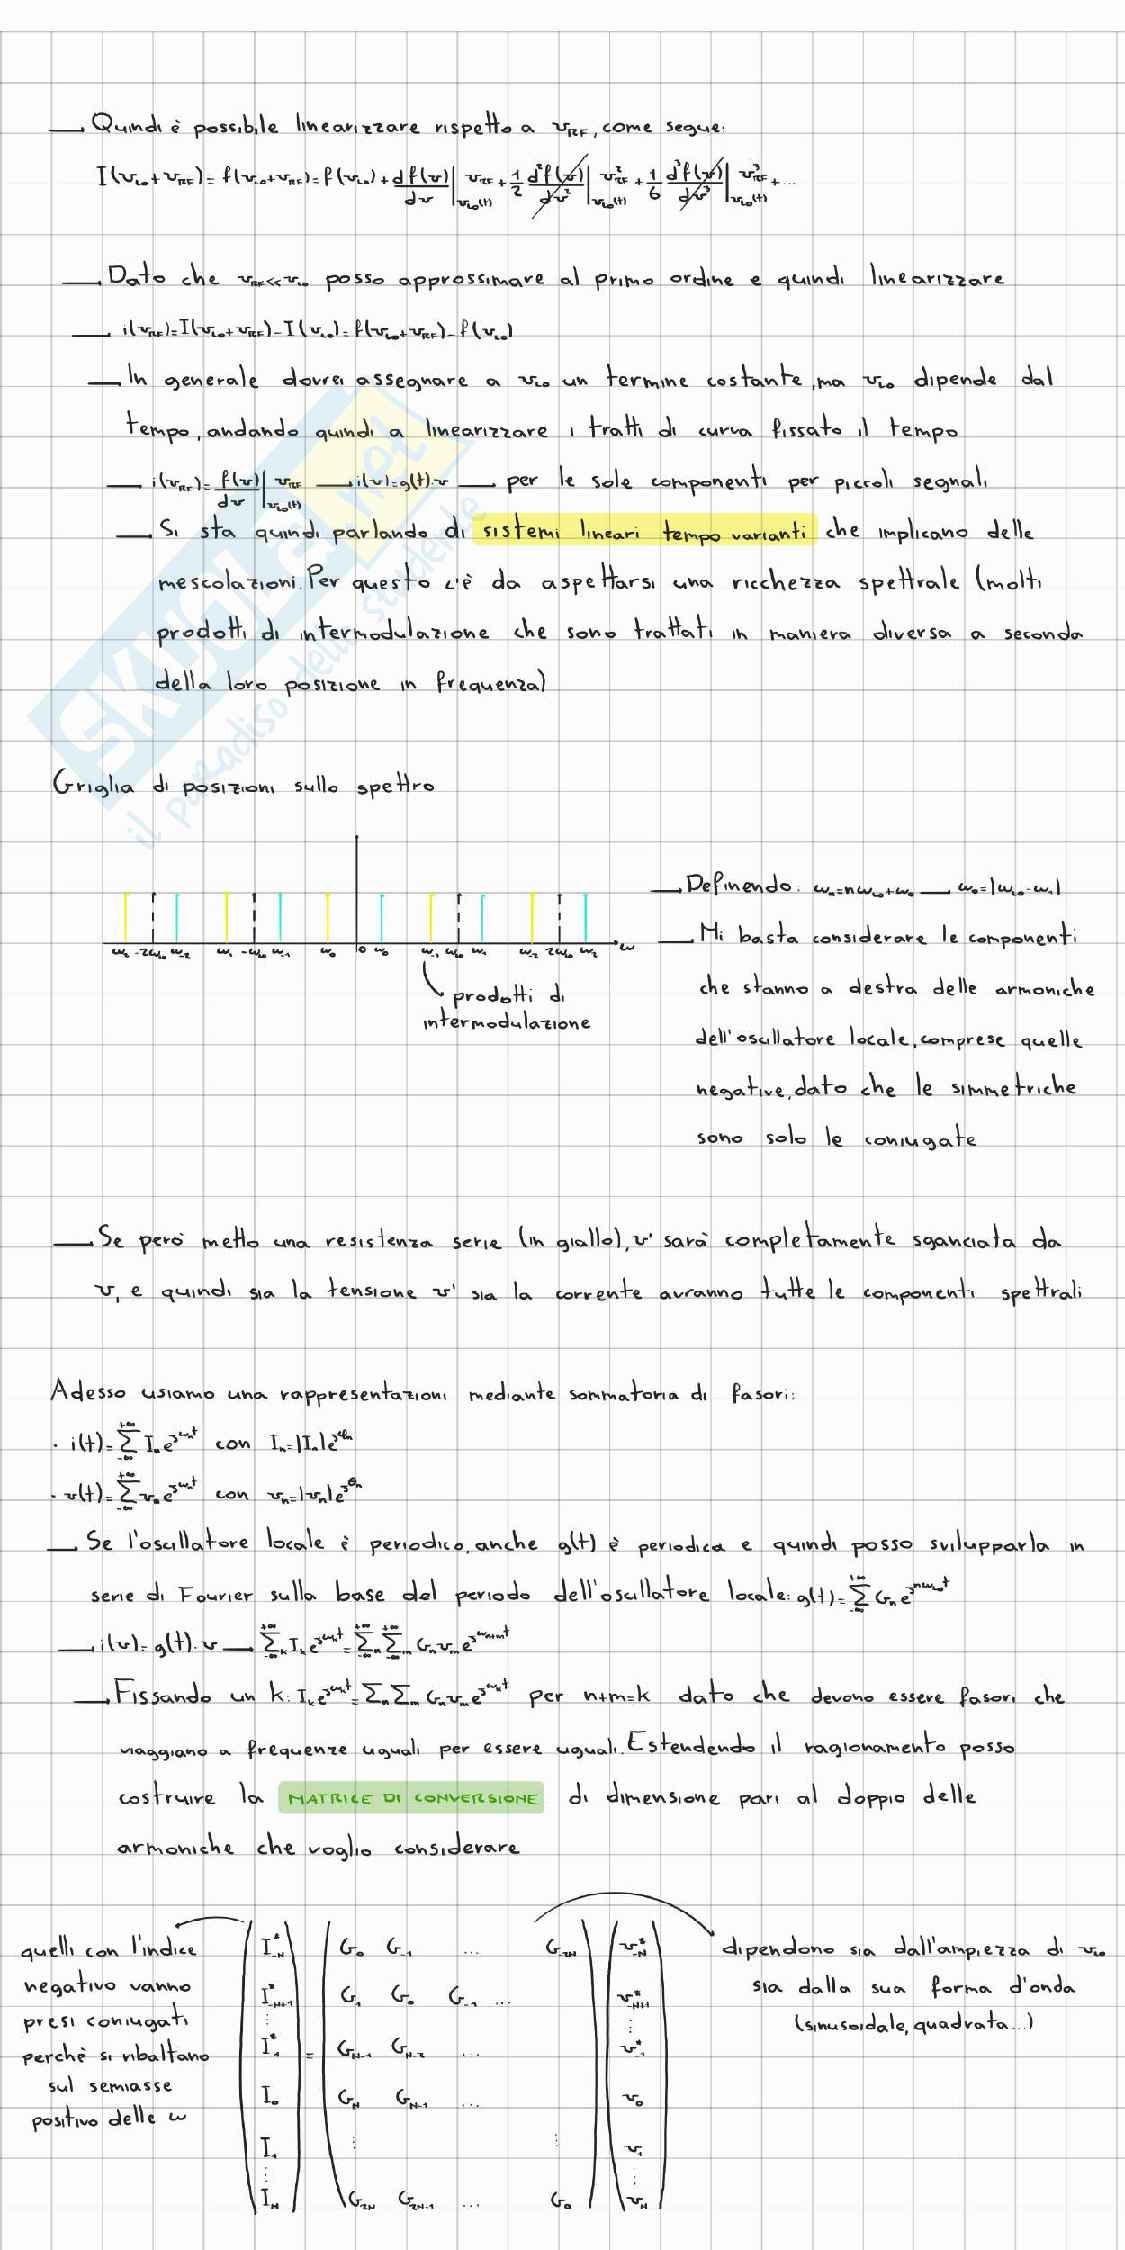 Quindi è possibile linearizzare rispetto a v_RF, come segue:
I(v_LO+v_RF)= f(v_LO+v_RF)= f(v_LO)+ df(v)/dv |v_LO(t) v_RF + 1/2 d²f(v)/dv² |v_LO(t) v²_RF + 1/6 d³f(v)/dv³ |v_LO(t) v³_RF +...
Dato che v_RF<<v_LO posso approssimare al primo ordine e quindi linearizzare
i(v_RF)=I(v_LO+v_RF)-I(v_LO)=f(v_LO+v_RF)-f(v_LO)
In generale dovrei assegnare a v_LO un termine costante, ma v_LO dipende dal
tempo, andando quindi a linearizzare i tratti di curva fissato il tempo
i(v_RF)= f(v)/dv |v_LO(t) v_RF — i(v)=g(t)·v — per le sole componenti per piccoli segnali
Si sta quindi parlando di sistemi lineari tempo varianti che implicano delle
mescolazioni. Per questo c'è da aspettarsi una ricchezza spettrale (molti
prodotti di intermodulazione che sono trattati in maniera diversa a seconda
della loro posizione in frequenza)
SKUOLA.net
il paradiso dello studente
Griglia di posizioni sullo spettro
ω₂ -2ω_LO ω₋₂ ω₁ -ω_LO ω₋₁ ω₀ 0 ω₀ ω₋₁ ω_LO ω₁ ω₋₂ 2ω_LO ω₂ ω
prodotti di
intermodulazione
Definendo: ω_n=nω_LO+ω₀ — ω₀=|ω_LO-ω_n|
Mi basta considerare le componenti
che stanno a destra delle armoniche
dell'oscillatore locale, comprese quelle
negative, dato che le simmetriche
sono solo le coniugate
Se però metto una resistenza serie (in giallo), v' sarà completamente sganciata da
v, e quindi sia la tensione v' sia la corrente avranno tutte le componenti spettrali
Adesso usiamo una rappresentazioni mediante sommatoria di fasori:
· i(t)=∑_{-∞}^{+∞} I_n e^{jω_n t} con I_n=|I_n|e^{jφ_n}
· v(t)=∑_{-∞}^{+∞} v_n e^{jω_n t} con v_n=|v_n|e^{jθ_n}
Se l'oscillatore locale è periodico, anche g(t) è periodica e quindi posso svilupparla in
serie di Fourier sulla base del periodo dell'oscillatore locale: g(t)=∑_{-∞}^{+∞} G_n e^{jnω_LO t}
i(v)=g(t)·v — ∑_{-∞}^{+∞}_k I_k e^{jω_k t}=∑_{-∞}^{+∞}_n ∑_{-∞}^{+∞}_m G_n v_m e^{jω_{n+m} t}
Fissando un k: I_k e^{jω_k t}=∑_n ∑_m G_n v_m e^{jω_k t} per n+m=k dato che devono essere fasori che
viaggiano a frequenze uguali per essere uguali. Estendendo il ragionamento posso
costruire la MATRICE DI CONVERSIONE di dimensione pari al doppio delle
armoniche che voglio considerare
quelli con l'indice
negativo vanno
presi coniugati
perchè si ribaltano
sul semiasse
positivo delle ω
I*_{-N} G₀ G₋₁ ... G₋₂N v*_{-N}
I*_{-N+1} G₁ G₀ G₋₁ ... v*_{-N+1}
⋮ ⋮
I*₋₁ = G_{N-1} G_{N-2} ... v*₋₁
I₀ G_N G_{N-1} ... v₀
I₁ ⋮ ⋮ v₁
⋮ ⋮
I_N G_{2N} G_{2N-1} ... G₀ v_N
dipendono sia dall'ampiezza di v_LO
sia dalla sua forma d'onda
(sinusoidale, quadrata...)